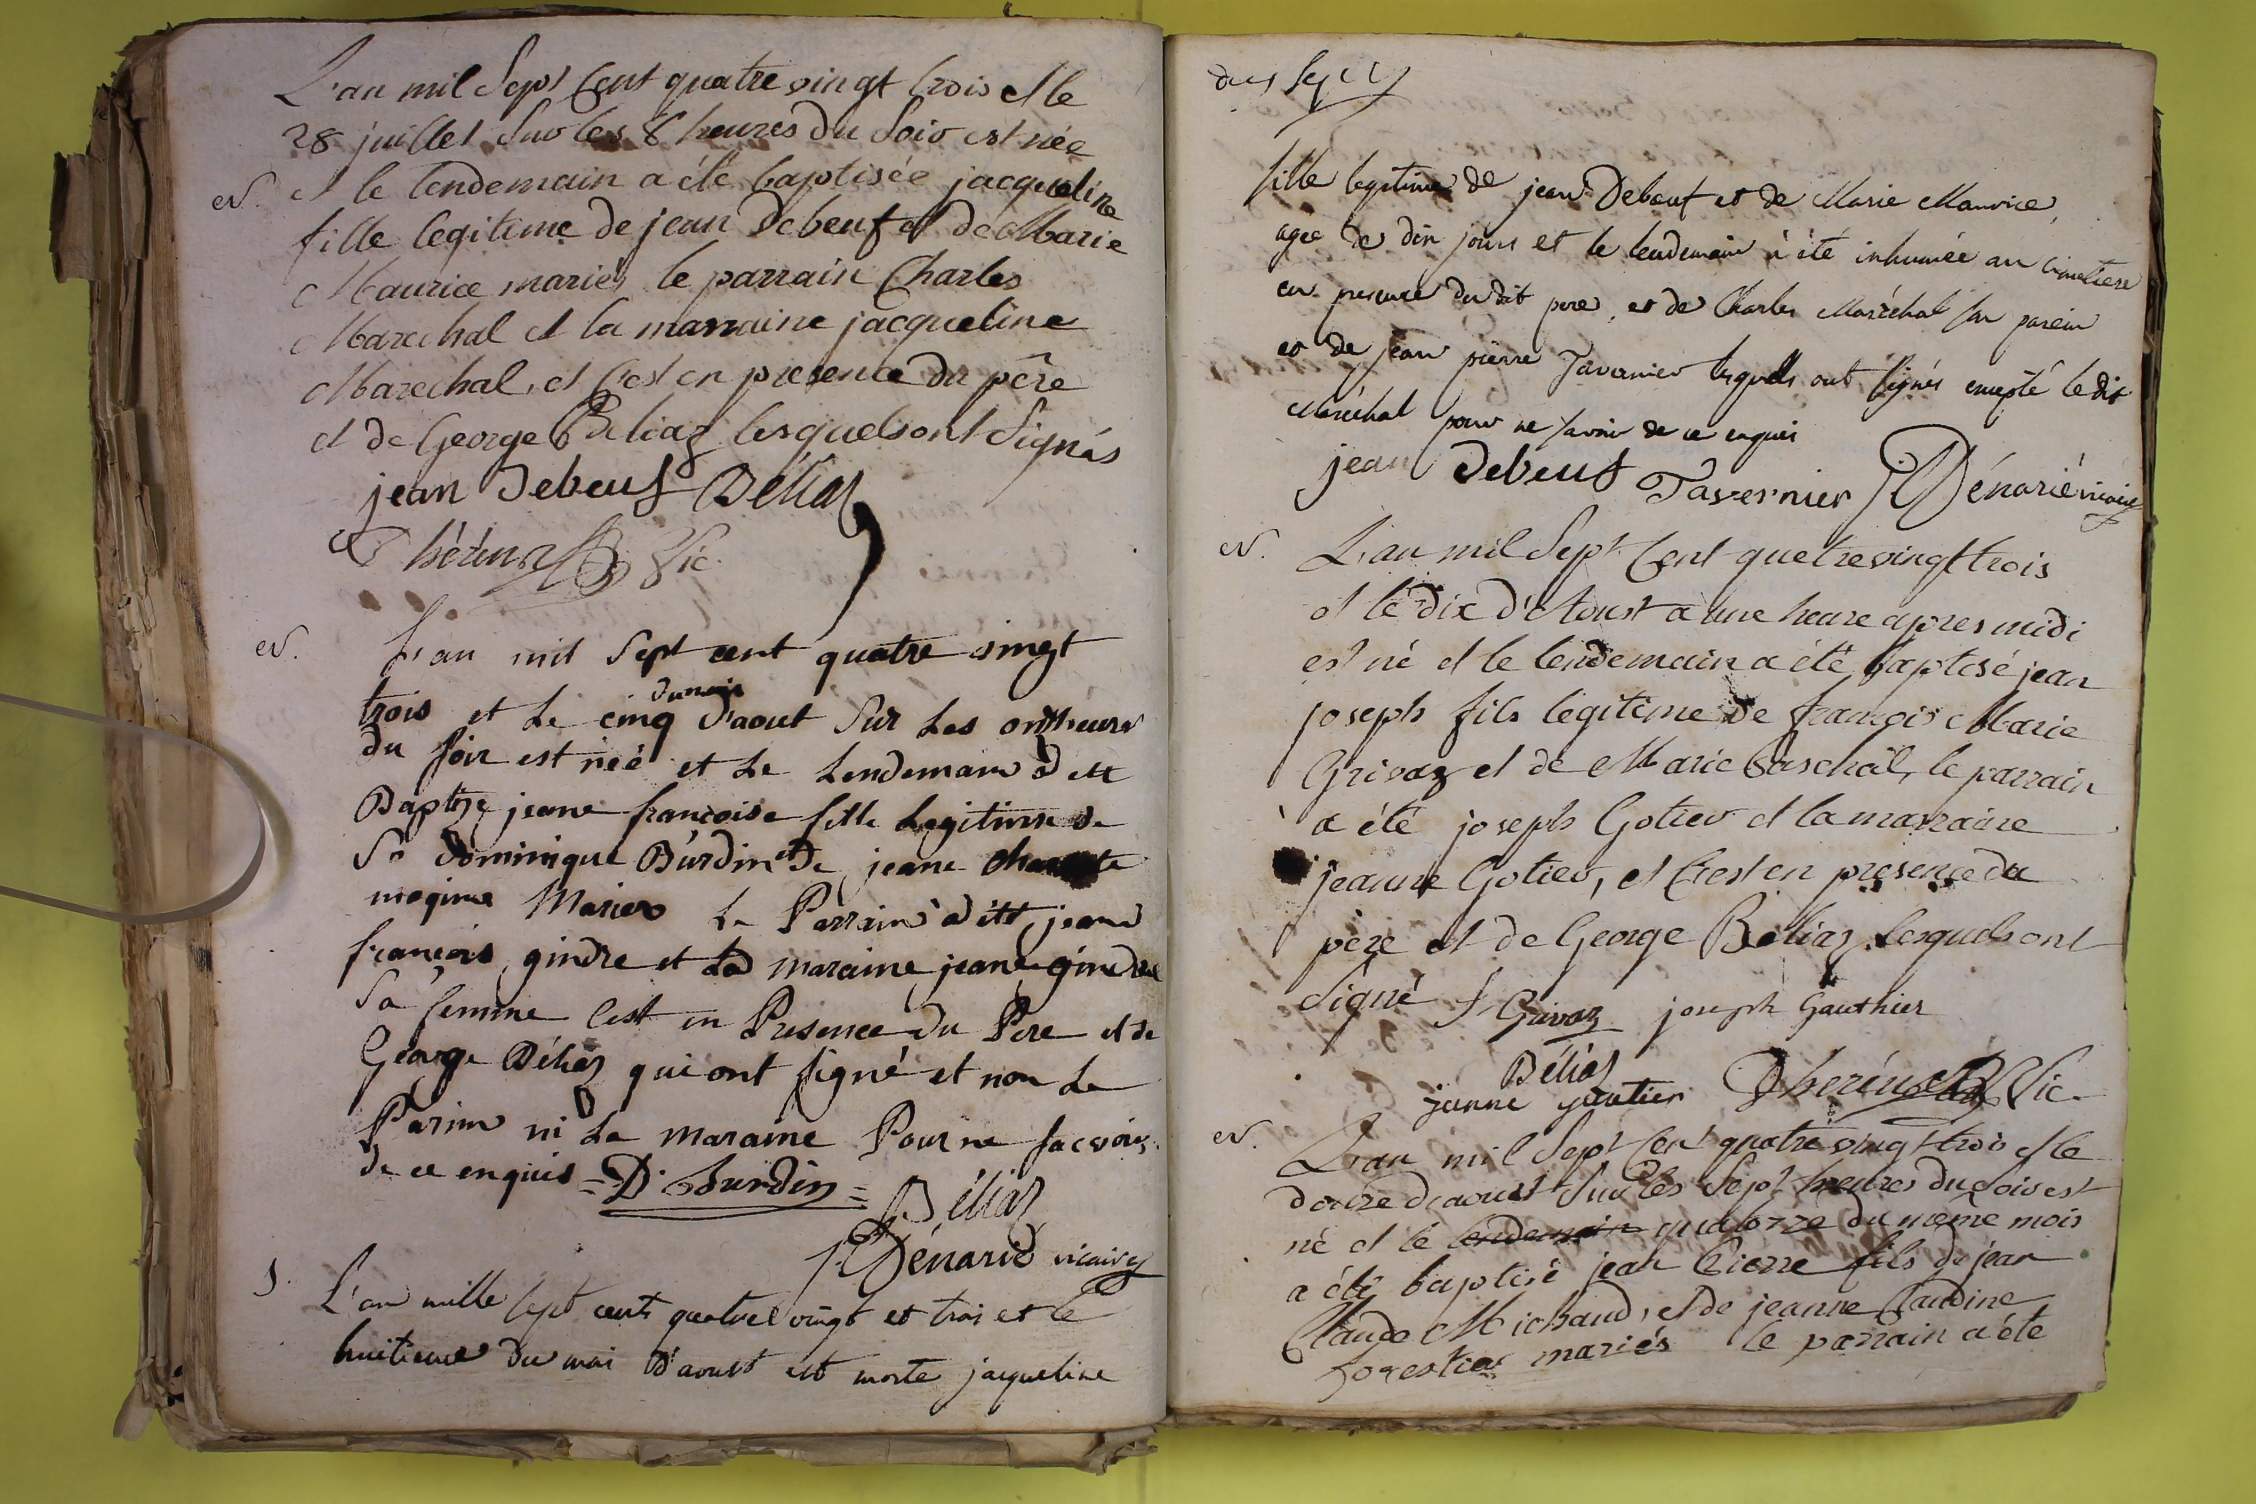 L'an mil Sept Cent quatre vingt trois et le
28 juillet Sur les 8 heures du Soir est née
et le lendemain a été baptisée jacqueline
fille legitime de jean Debeuf et de Marie
Maurice mariés le parrain Charles
Marechal et la marraine jacqueline
Marechal, et C'est en presence du père
et de George Beliaz lesquels ont Signés
jean Debeuf Béliaz
Vic.
L'an mil Sept cent quatre vingt
du mois
trois et Le cinq d'aout Sur Les onze heures
du soir est née et Le Lendemain à été
Baptisé jeane françoise fille Legitime de
Sr Dominique Burdin et de jeane
Maries Le Parrain à été jean
françois gindre et La maraine jeane gindre
Sa femme C'est en Presence du Pere et de
George Béliaz qui ont signé et non Le
Parain ni La maraine Pour ne sacvoir
de ce enquis = D. Burdin =
Béliaz
Dénarié vicaire
S. L'an mille sept cent quatre vingt et trois et le
huitieme du moi d'aoust est morte jacqueline
fille legitime de jean Debeuf et de Marie Maurice,
agee de dix jours et le lendemain à été inhumée au cimetiere
en presence du dit pere, et de Charles Maréchal son parein
et de jean pierre Tavernier lesquels ont signés excepté le dit
Maréchal pour ne savoir de ce enquis
jean Debeuf Tavernier Dénarié vicaire
L'an mil Sept Cent quetre vingt trois
et le dix d'Aoust a une heure apres midi
est né et le lendemain a été baptisé jean
joseph fils legitime de françois Marie
Grivaz et de Marie Paschal, le parrain
a été joseph Gotier et la marraine
jeanne Gotier, et C'est en presence du
père et de George Beliaz lesquels ont
Signé f Grivaz joseph Gauthier
Béliaz
janne gautier Vic.
L'an mil Sept Cent quatre vingt trois et le
douze d'aoust Sur les Sept heures du Soir est
né et le lendemain quatorze du meme mois
a été baptisé jean Pierre fils de jean
Claude Michaud, et de jeanne Claudine
forestier mariés le parrain a été